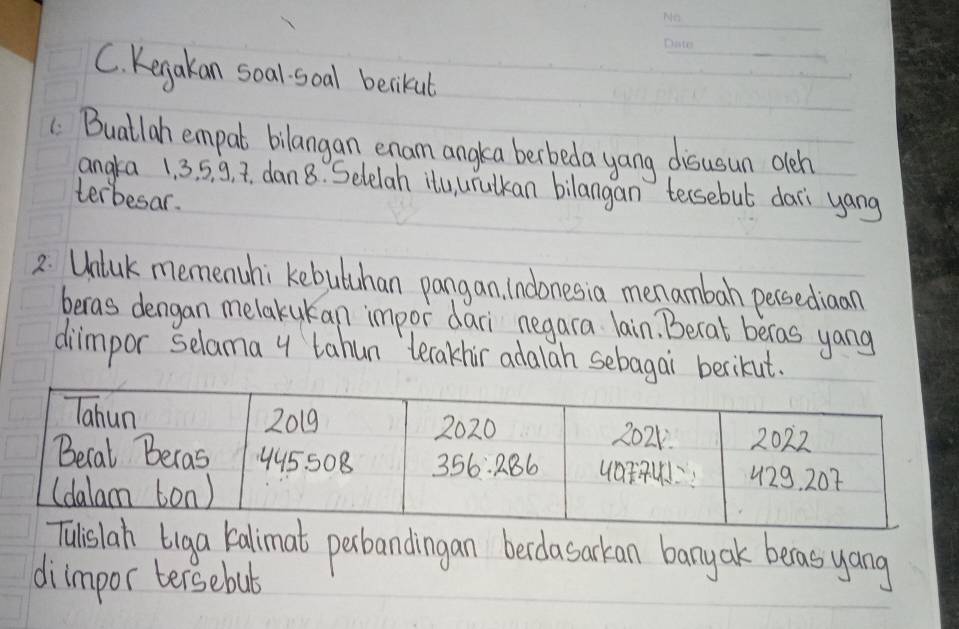 No.
Date
C. Kerjakan soal-soal berikut
1. Buatlah empat bilangan enam angka berbeda yang disusun oleh
angka 1,3,5,9,7, dan 8. Setelah itu, urutkan bilangan tersebut dari yang
terbesar.
2. Untuk memenuhi kebutuhan pangan, Indonesia menambah persediaan
beras dengan melakukan impor dari negara lain. Berat beras yang
diimpor selama 4 tahun terakhir adalah sebagai berikut.
Tahun 2019 2020 2021 2022
Berat Beras 445.508 356.286 407.741 429.207
(dalam ton)
Tulislah tiga kalimat perbandingan berdasarkan banyak beras yang
diimpor tersebut